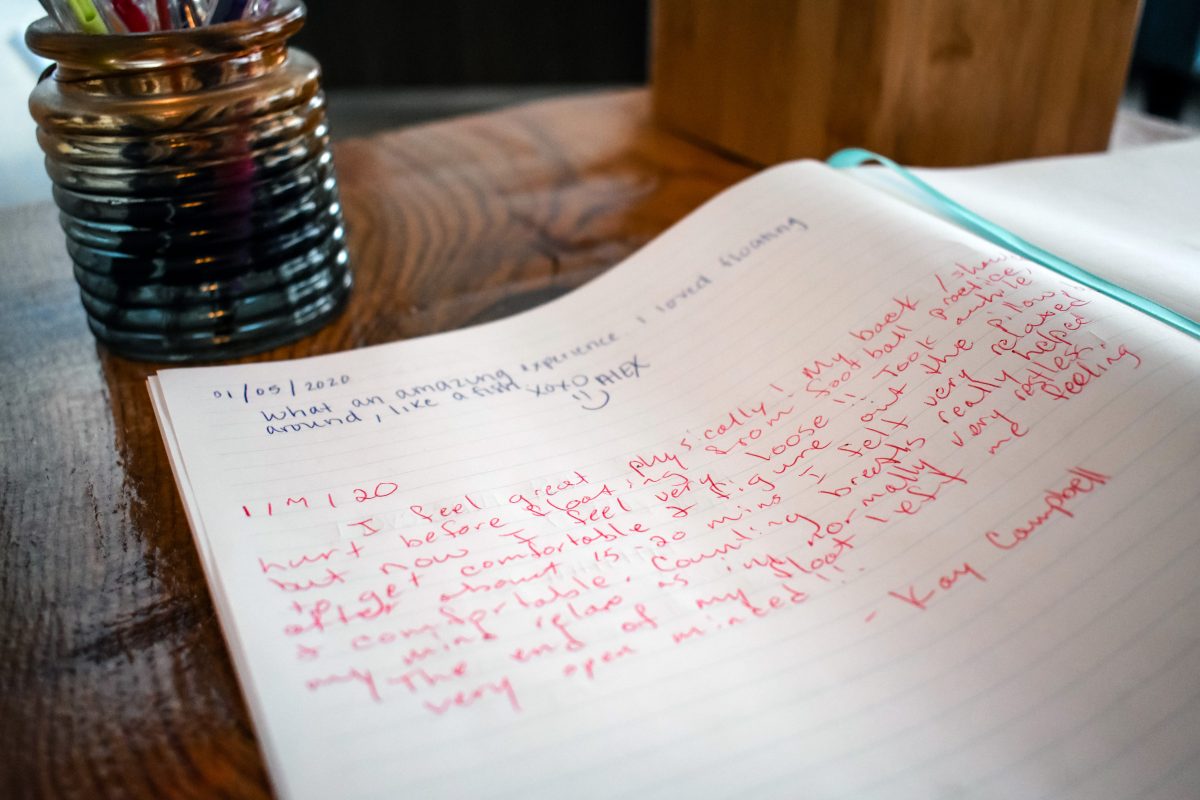 01/05/2020
What an amazing experience. I loved floating
around, like a fish xoxo ALEX
1/M/20
I feel great physically! My back /
hurt before floating from football practice,
but now I feel very loose!! Took awhile
to get comfortable & figure out the pillow,
after about 15-20 mins I felt very relaxed
& comfortable. Counting breaths really helped
my mind relax as normally very restless.
The end of my float left me feeling
very open minded!!!
- Kay Campbell